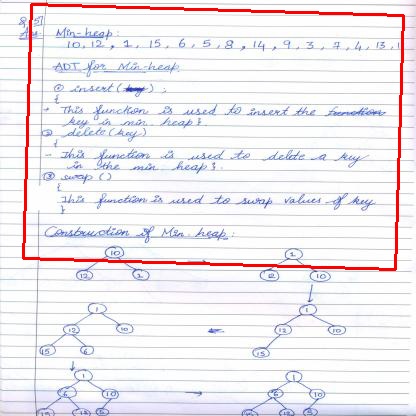 Min-heap:
10, 12, 1, 15, 6, 5, 8, 14, 9, 3, 7, 4, 13, 1
ADT for Min-heap
① insert (key) ;
{
- This function is used to insert the function
key in min heap }.
② delete (key)
{
- This function is used to delete a key
in the min heap }.
③ swap ()
{
This function is used to swap values of key
}
Construction of Min-heap:
10 1
12 1 12 10
1 1
12 10 12 10
15 6 15
1 1
6 10 6 10
15 12 15 12 5